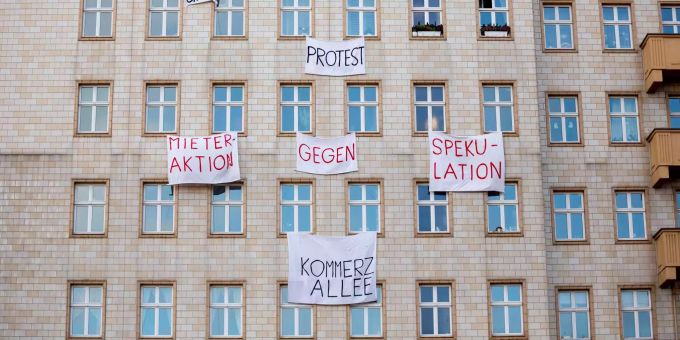 PROTEST
MIETER-
AKTION
GEGEN
SPEKU-
LATION
KOMMERZ
ALLEE